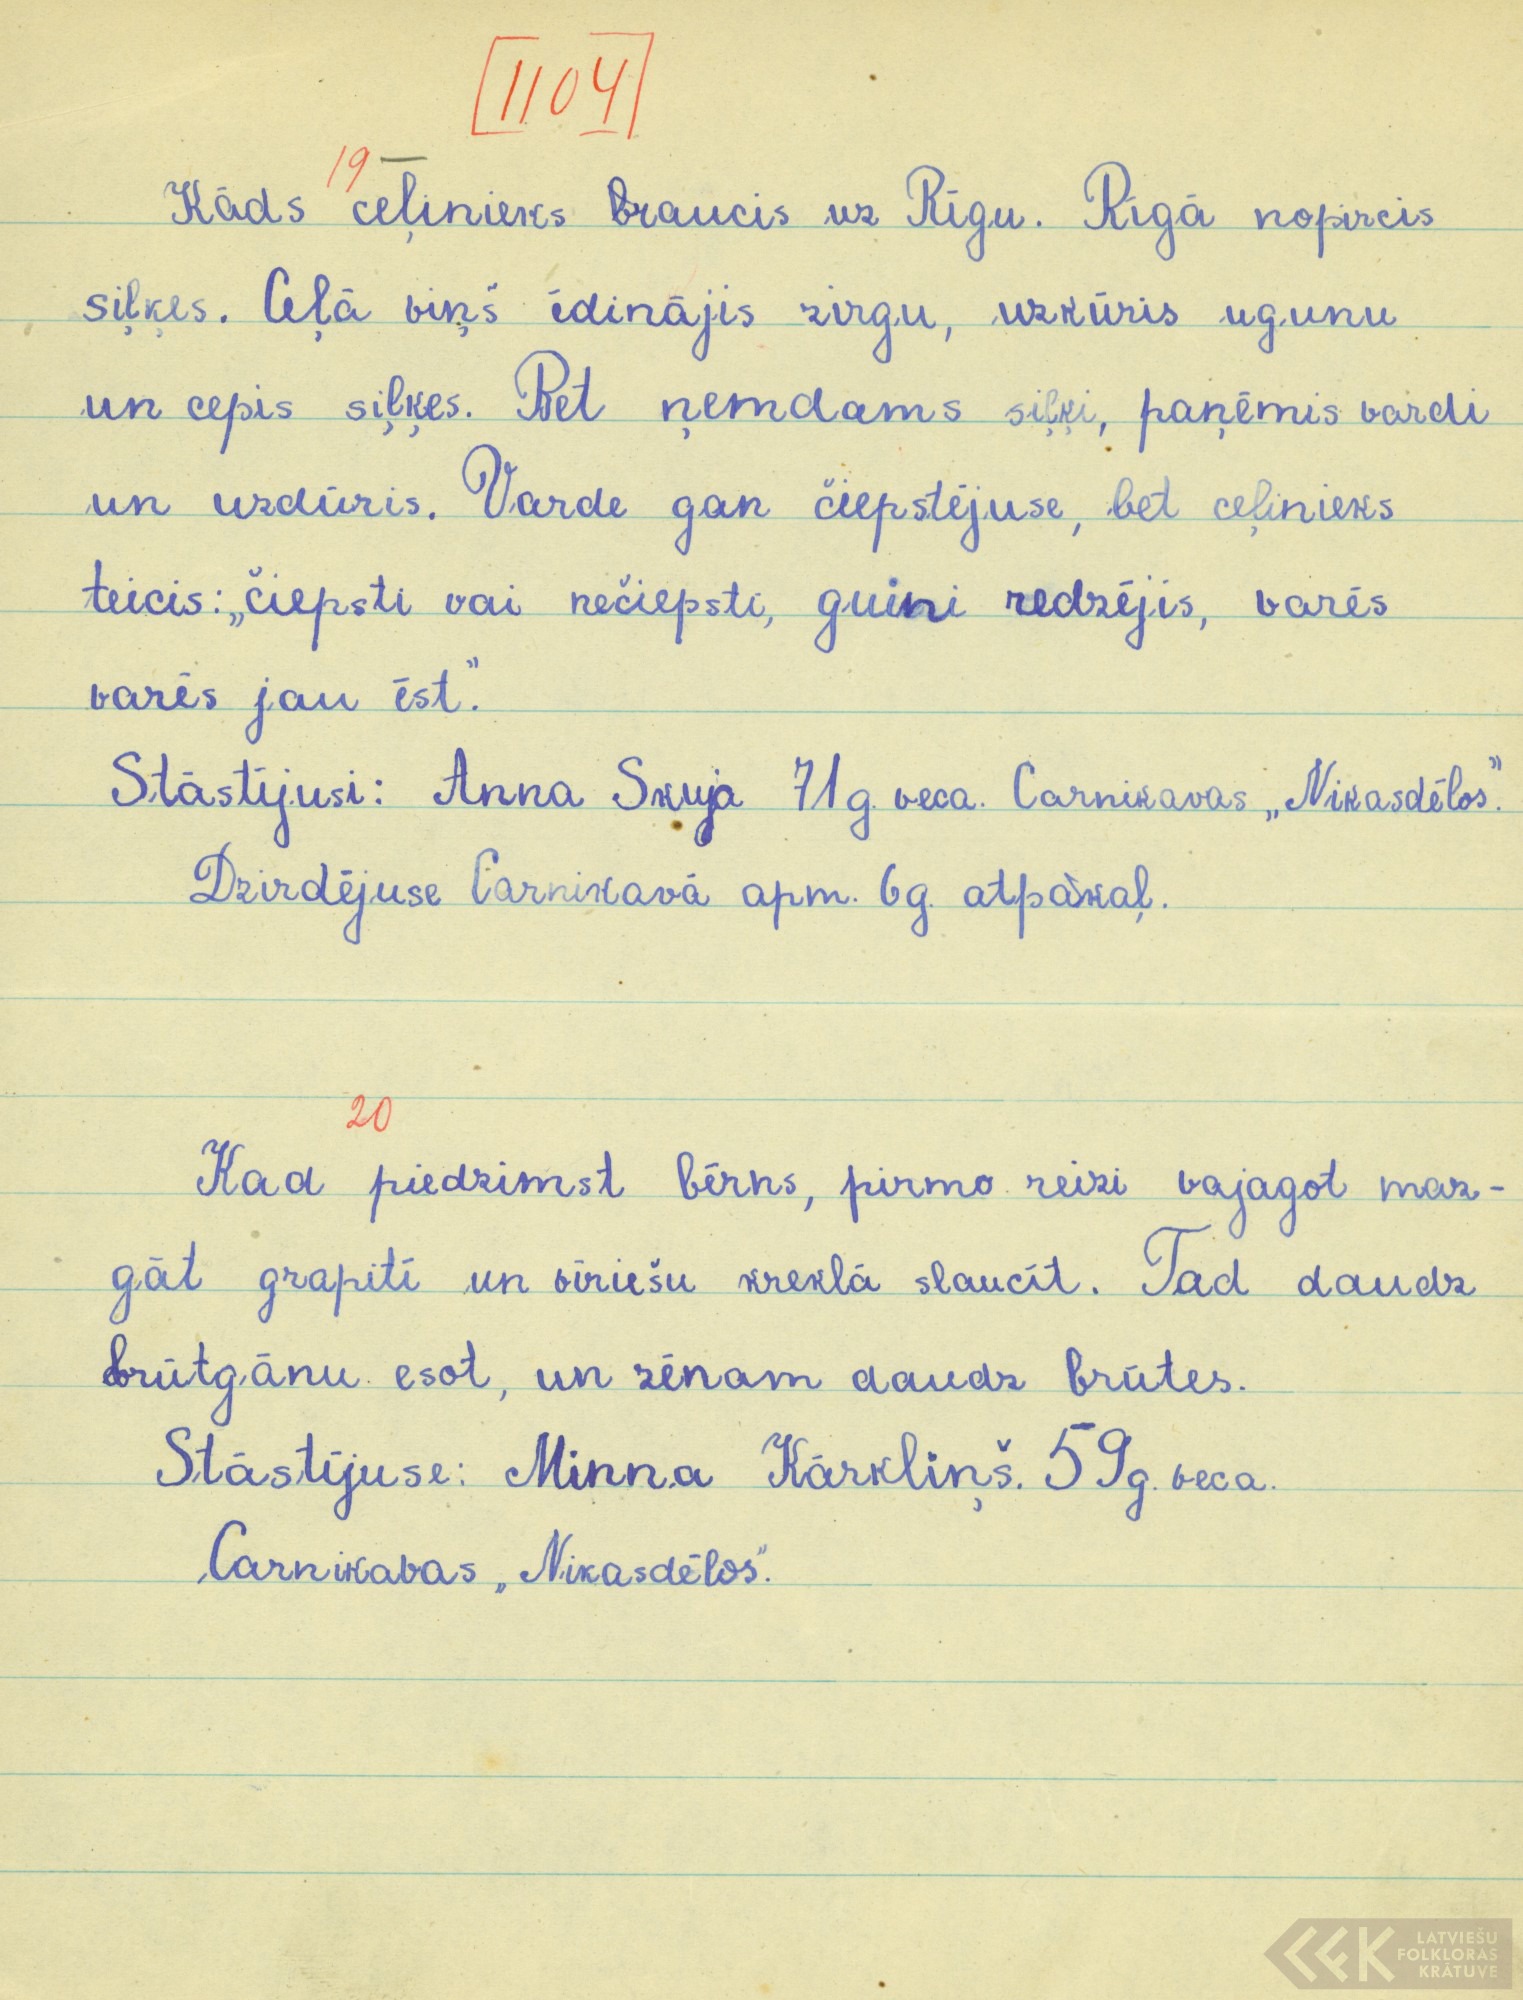 [1104]
19
Kāds ceļinieks braucis uz Rīgu. Rīgā nopircis
siļķes. Ceļā viņš ēdinājis zirgu, uzkūris ugunu
un cepis siļķes. Bet ņemdams siļķi, paņēmis vardi
un uzdūris. Varde gan čiepstējuse, bet ceļinieks
teicis: „čiepsti vai nečiepsti, guini redzējis, varēs
varēs jau ēst".
Stāstījusi: Anna Skuja 71 g. veca. Carnikavas „Nikasdēlos".
Dzirdējuse Carnikavā apm. 6 g. atpakaļ.
20
Kad piedzimst bērns, pirmo reizi vajagot maz-
gāt grapitī un vīriešu kreklā slaucīt. Tad daudz
brūtgānu esot, un zēnam daudz brūtes.
Stāstījuse: Minna Kārkliņš. 59 g. veca.
Carnikavas „Nikasdēlos".
LATVIEŠU
FOLKLORAS
KRĀTUVE